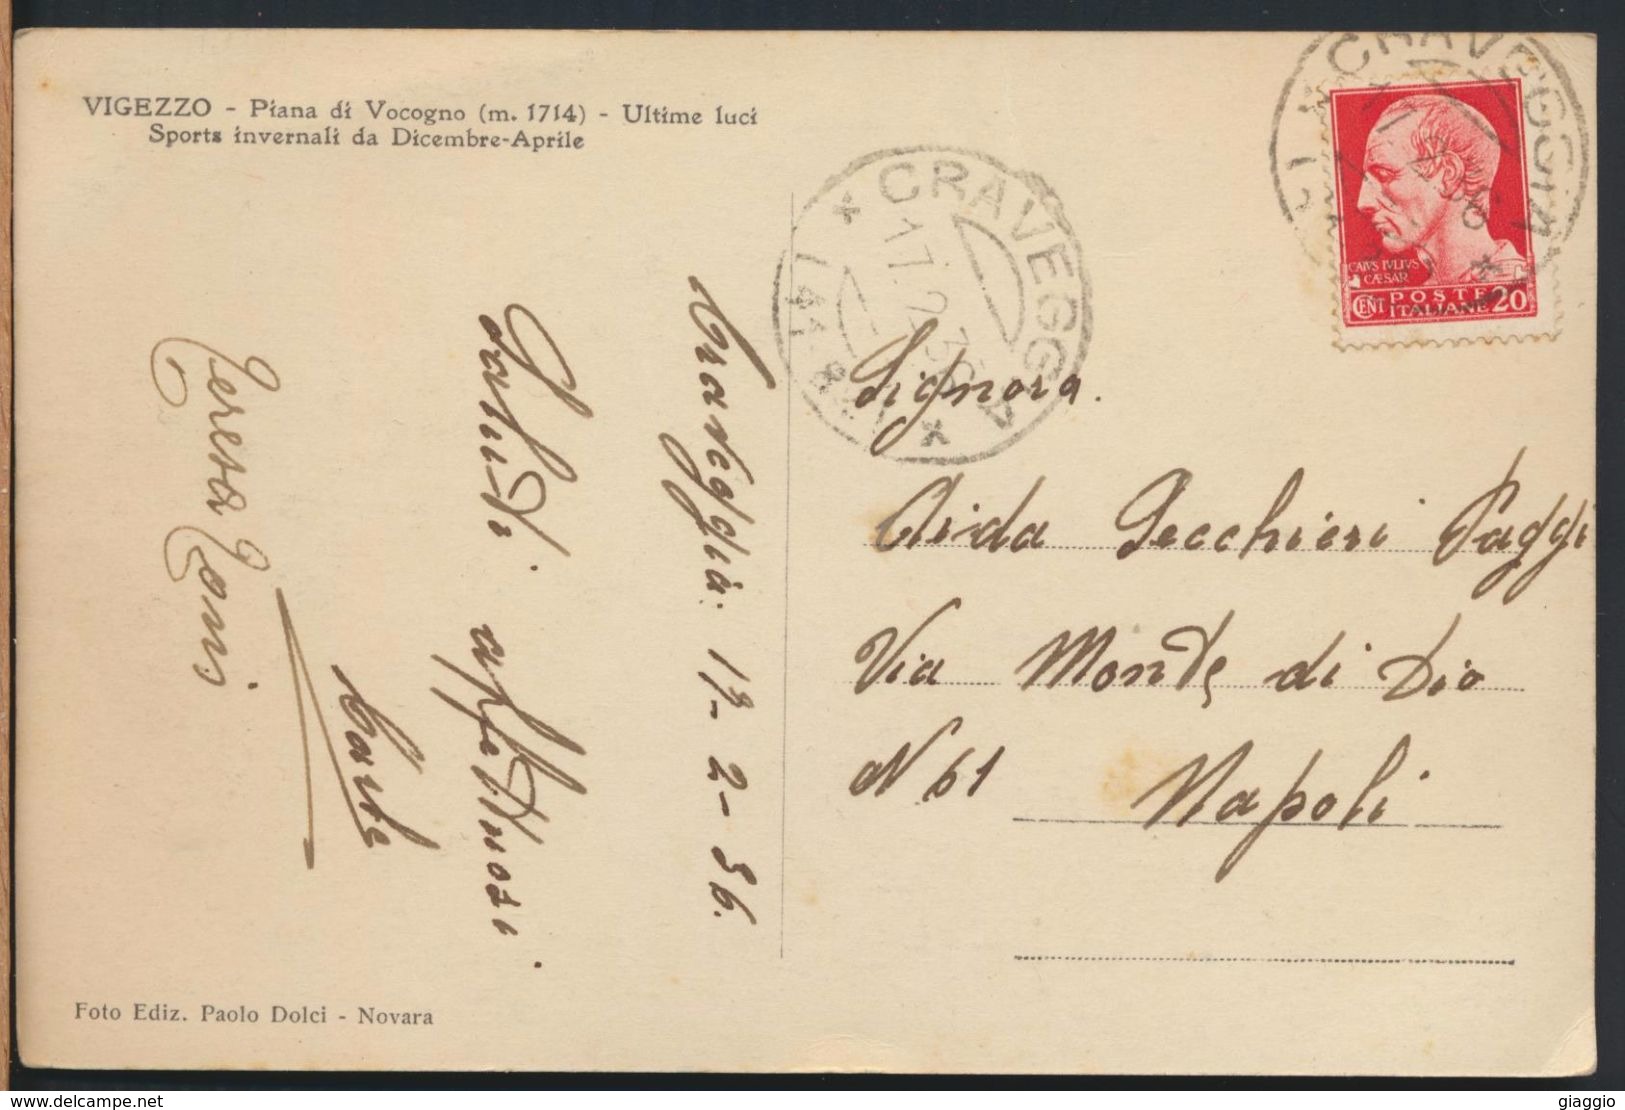 VIGEZZO - Piana di Vocogno (m. 1714) - Ultime luci
Sports invernali da Dicembre-Aprile
CRAVEGGIA
17.2.36
CRAVEGGIA
CAIVS IVLIVS
CAESAR
CENT POSTE
ITALIANE 20
Signora.
Aida Secchieri Paggi
Via Monte di Dio
N 61
Napoli
Craveggia. 17-2-36.
Saluti affettuosi.
Teresa
Foto Ediz. Paolo Dolci - Novara
delcampe.net
giaggio